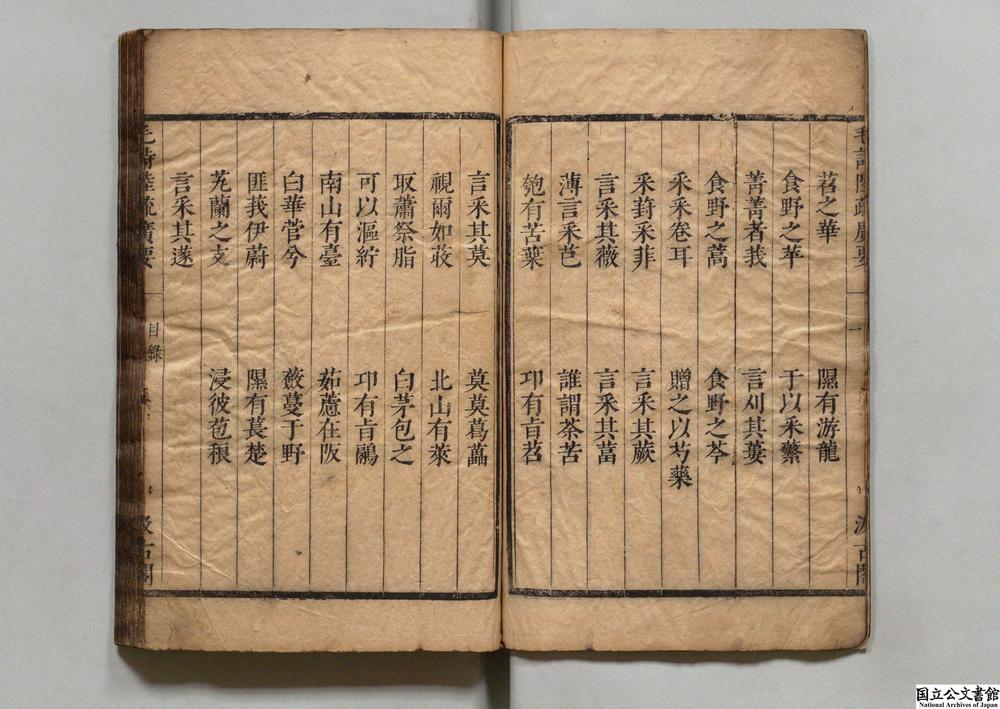 苕之華　隰有游龍
食野之苹　于以采蘩
菁菁者莪　言刈其蔞
食野之蒿　食野之芩
采采卷耳　贈之以芍藥
采葑采菲　言采其蕨
言采其薇　言采其葍
薄言采芑　誰謂荼苦
匏有苦葉　卭有旨苕
言采其莫　莫莫葛藟
視爾如荍　北山有萊
取蕭祭脂　白茅包之
可以漚紵　卭有旨鷊
南山有臺　茹藘在阪
白華菅兮　蘞蔓于野
匪莪伊蔚　隰有萇楚
芄蘭之支　浸彼苞稂
言采其蓫
毛詩陸疏廣要　目錄　汲古閣
国立公文書館
National Archives of Japan